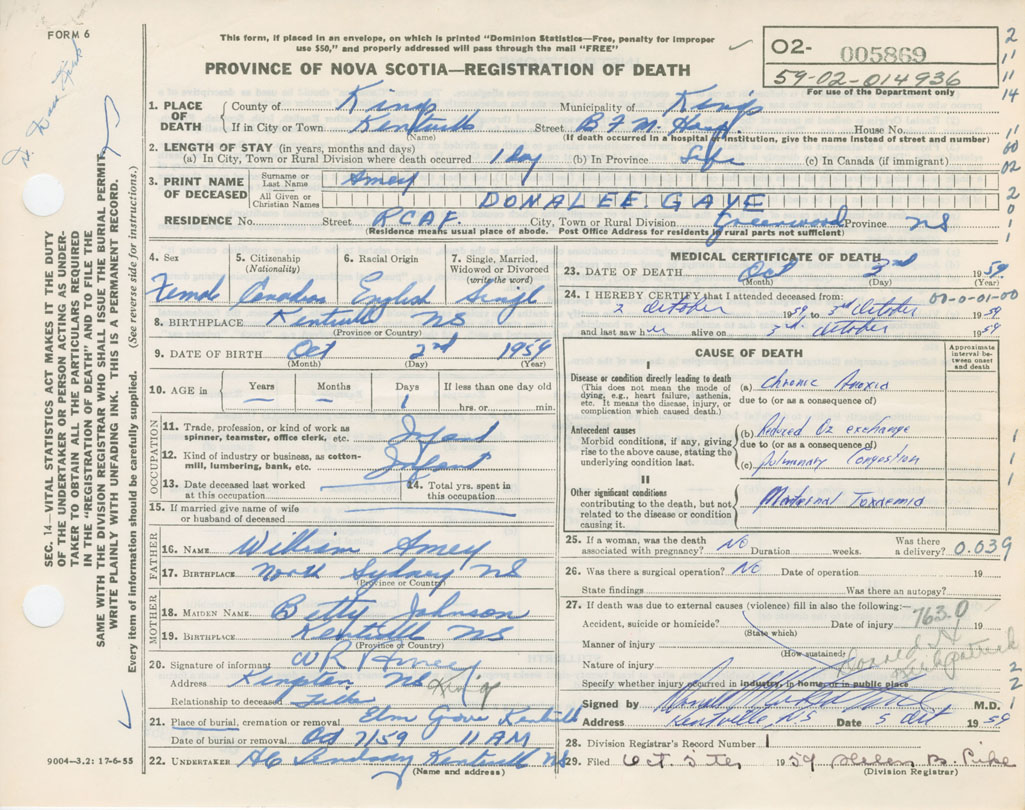 FORM 6
This form, if placed in an envelope, on which is printed "Dominion Statistics—Free, penalty for improper
use $50," and properly addressed will pass through the mail "FREE"
PROVINCE OF NOVA SCOTIA—REGISTRATION OF DEATH
O2- 005869
59-02-014936
For use of the Department only
1. PLACE OF DEATH
County of Kings Municipality of Kings
If in City or Town Kentville Street B F M Hosp. House No.
(Name) (If death occurred in a hospital or institution, give the name instead of street and number)
2. LENGTH OF STAY (in years, months and days)
(a) In City, Town or Rural Division where death occurred 1 Day (b) In Province Life (c) In Canada (if immigrant)
3. PRINT NAME OF DECEASED
Surname or Last Name Amey
All Given or Christian Names DONALEE GAYE
RESIDENCE No. Street RCAF. City, Town or Rural Division Greenwood Province NS
(Residence means usual place of abode. Post Office Address for residents in rural parts not sufficient)
4. Sex Female
5. Citizenship (Nationality) Canadian
6. Racial Origin English
7. Single, Married, Widowed or Divorced (write the word) Single
8. BIRTHPLACE Kentville NS
(Province or Country)
9. DATE OF BIRTH Oct 2nd 1959
(Month) (Day) (Year)
10. AGE in Years — Months — Days 1 If less than one day old
hrs. or min.
OCCUPATION
11. Trade, profession, or kind of work as spinner, teamster, office clerk, etc. Infant
12. Kind of industry or business, as cotton-mill, lumbering, bank, etc. Infant
13. Date deceased last worked at this occupation
14. Total yrs. spent in this occupation
15. If married give name of wife or husband of deceased
FATHER
16. NAME William Amey
17. BIRTHPLACE North Sydney NS
(Province or Country)
MOTHER
18. MAIDEN NAME Betty Johnson
19. BIRTHPLACE Kentville NS
(Province or Country)
20. Signature of informant WR Amey
Address Kingston NS Kings
Relationship to deceased Father
21. Place of burial, cremation or removal Elm Grove Kentville
Date of burial or removal Oct 7/59 11 AM
22. UNDERTAKER AC Lindsay Kentville NS
(Name and address)
9004—3.2: 17-6-55
MEDICAL CERTIFICATE OF DEATH
23. DATE OF DEATH Oct 3rd 1959
(Month) (Day) (Year)
24. I HEREBY CERTIFY that I attended deceased from: 00-0-01-00
2 October 1959 to 3rd October 1959
and last saw her alive on 3rd October 1959
CAUSE OF DEATH
Approximate interval between onset and death
I
Disease or condition directly leading to death
(This does not mean the mode of dying, e.g., heart failure, asthenia, etc. It means the disease, injury, or complication which caused death.)
(a) Chronic Anoxia
due to (or as a consequence of)
Antecedent causes
Morbid conditions, if any, giving rise to the above cause, stating the underlying condition last.
(b) Reduced O2 exchange
due to (or as a consequence of)
(c) Pulmonary Congestion
II
Other significant conditions
contributing to the death, but not related to the disease or condition causing it.
Maternal Toxaemia
25. If a woman, was the death associated with pregnancy? No Duration weeks. Was there a delivery? 0.039
26. Was there a surgical operation? No Date of operation 19
State findings Was there an autopsy?
27. If death was due to external causes (violence) fill in also the following:—
Accident, suicide or homicide? Date of injury 19
763.0
(State which)
Manner of injury
(How sustained)
Nature of injury
Donald H Kirkpatrick
Specify whether injury occurred in industry, in home, or in public place
Signed by M.D.
Address Kentville, NS Date 5 Oct 1959
28. Division Registrar's Record Number 1
29. Filed Oct. 5 1959 Helen B. Pike
(Division Registrar)
SEC. 14—VITAL STATISTICS ACT MAKES IT THE DUTY
OF THE UNDERTAKER OR PERSON ACTING AS UNDER-
TAKER TO OBTAIN ALL THE PARTICULARS REQUIRED
IN THE "REGISTRATION OF DEATH" AND TO FILE THE
SAME WITH THE DIVISION REGISTRAR WHO SHALL ISSUE THE BURIAL PERMIT.
WRITE PLAINLY WITH UNFADING INK. THIS IS A PERMANENT RECORD.
Every item of information should be carefully supplied. (See reverse side for instructions.)
2
11
11
14
11
60
02
2
0
1
1
1
1
1
2
2
1